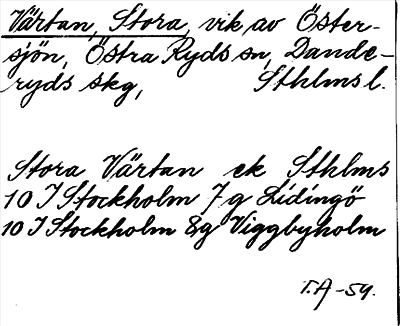 Värtan, Stora, vik av Öster-
sjön, Östra Ryds sn, Dande-
ryds skg, Sthlms l.
Stora Värtan ek Sthlms
10 I Stockholm 7g Lidingö
10 I Stockholm 8g Viggbyholm
T.A -59.